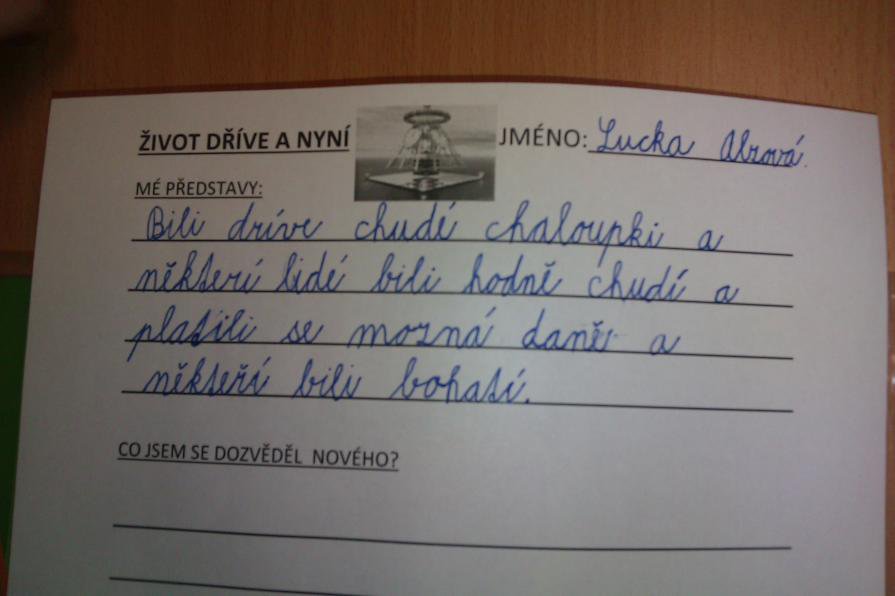 ŽIVOT DŘÍVE A NYNÍ JMÉNO: Lucka
MÉ PŘEDSTAVY:
Bili dríve chudé chaloupki a
někteří lidé bili hodně chudí a
platili se mozná daně a
někteří bili bohatí.
CO JSEM SE DOZVĚDĚL NOVÉHO?